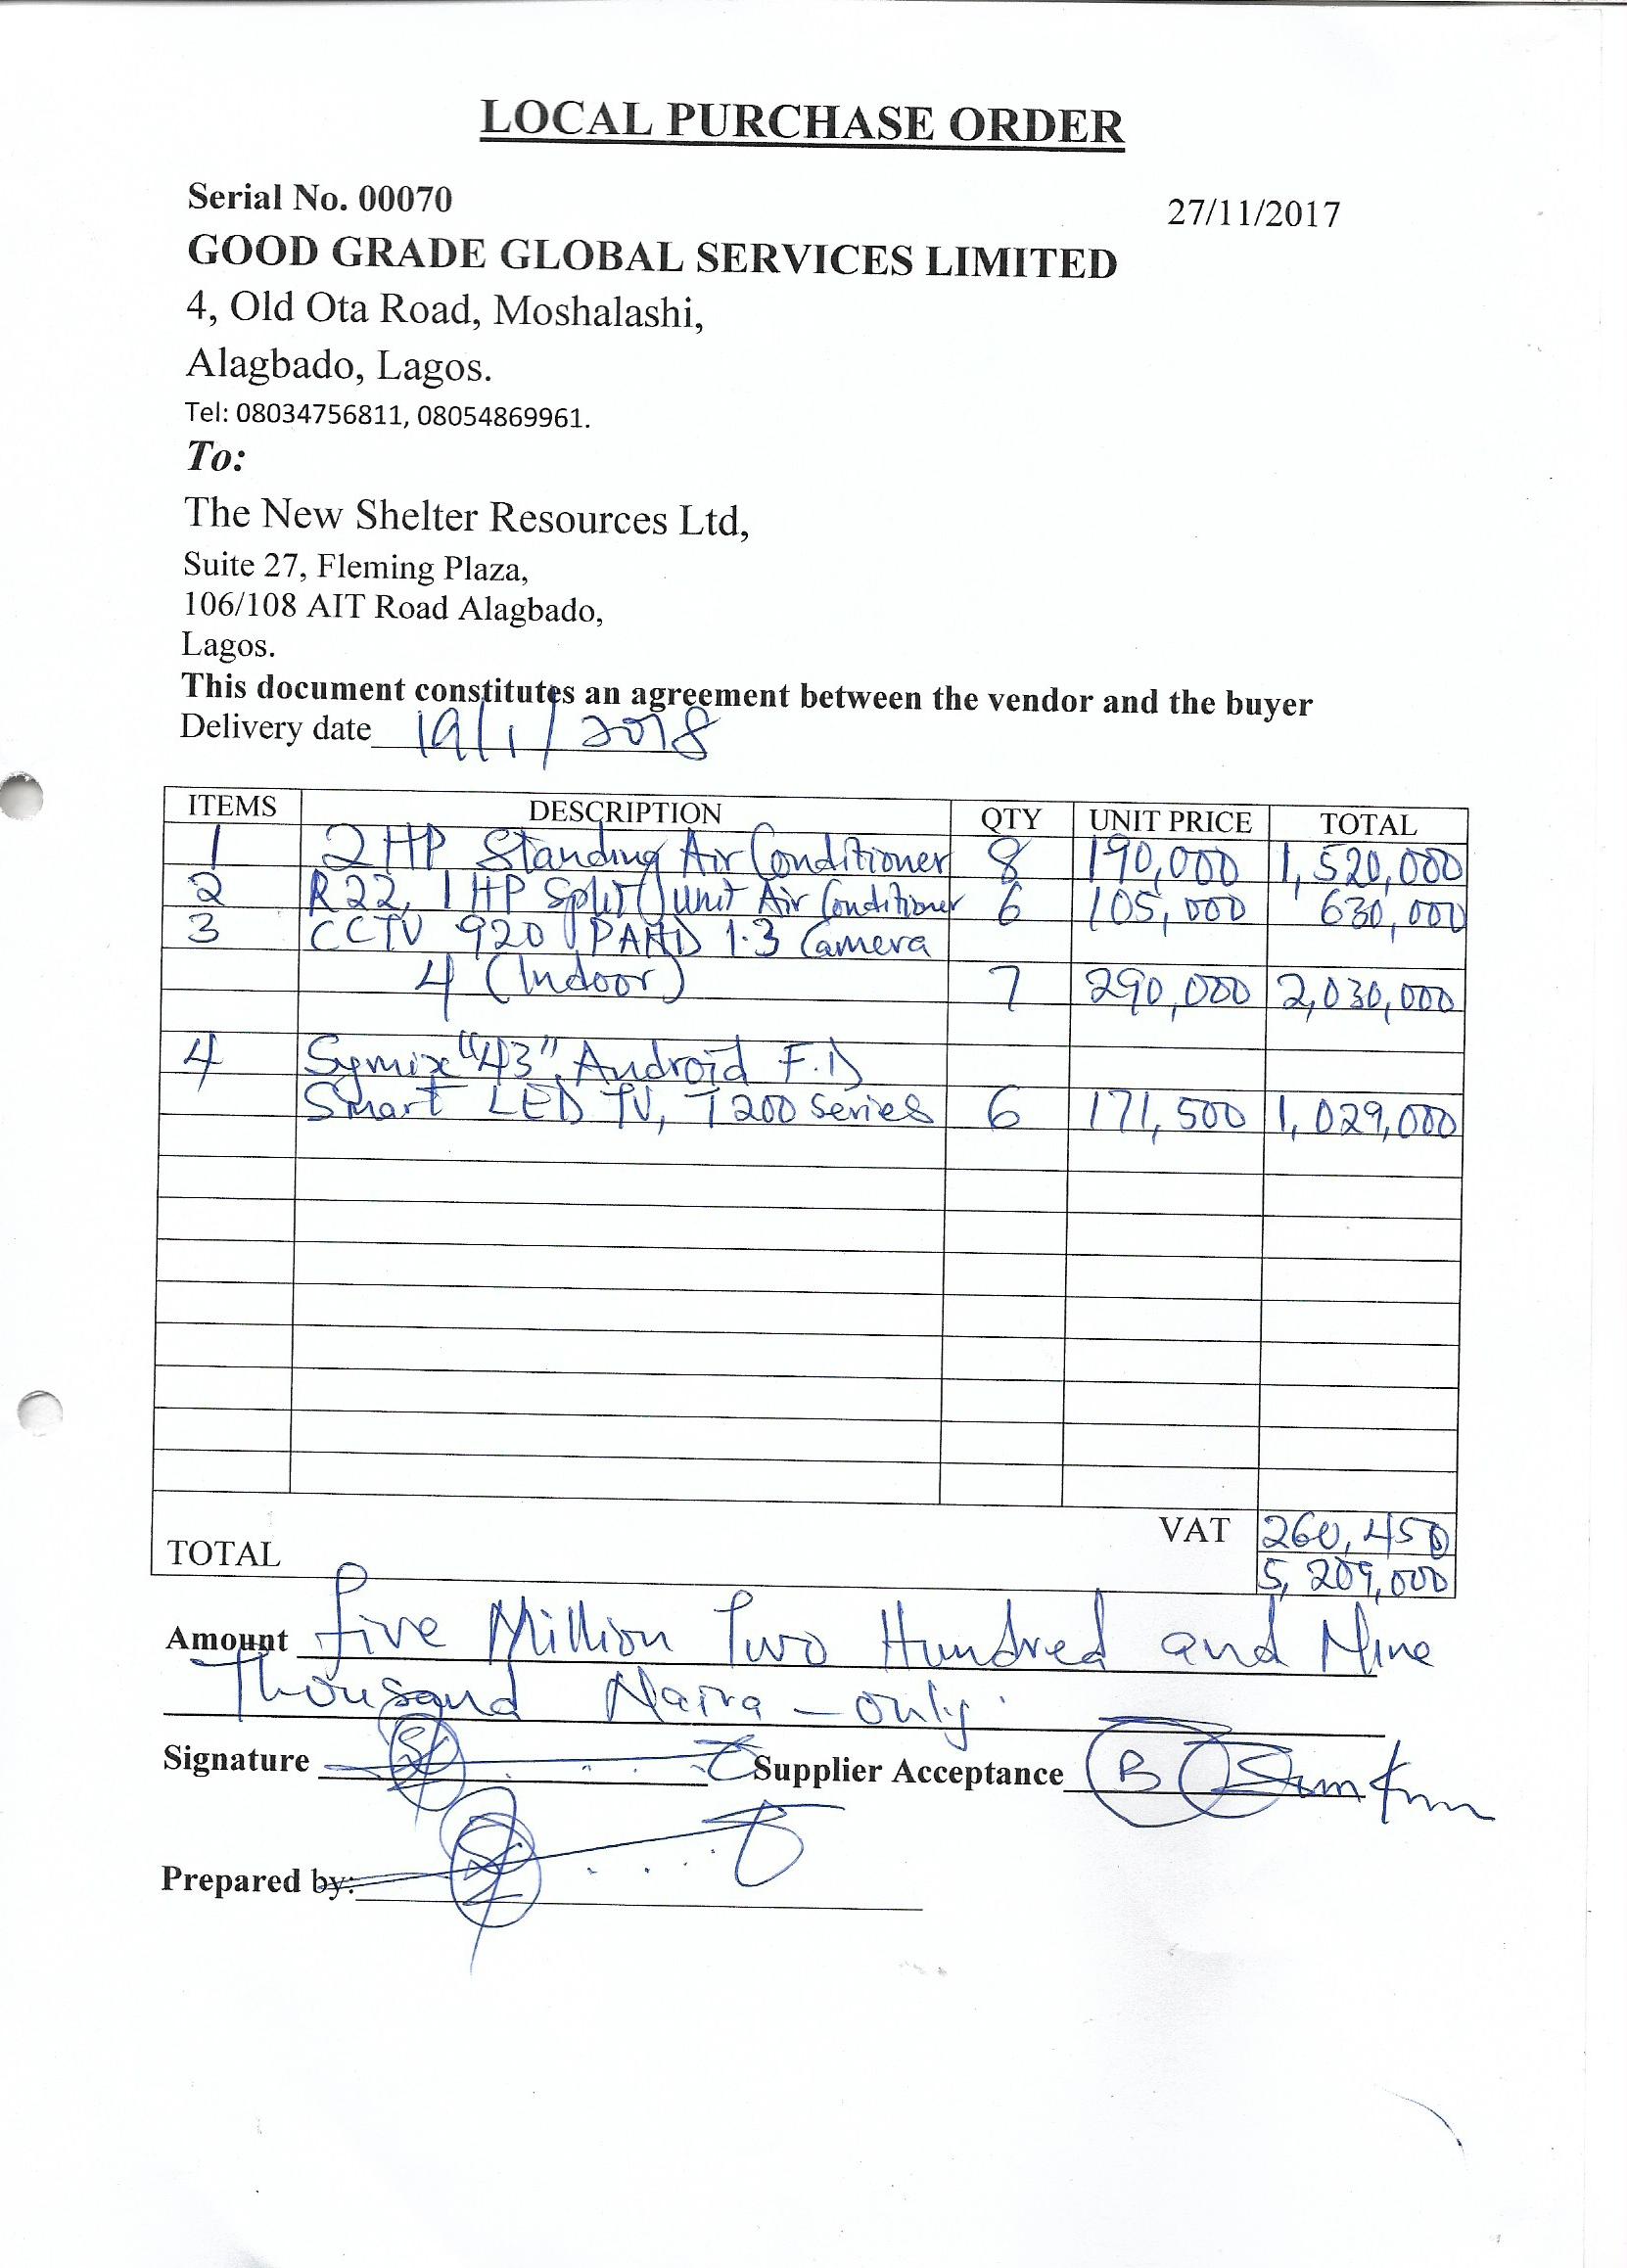 LOCAL PURCHASE ORDER
Serial No. 00070
27/11/2017
GOOD GRADE GLOBAL SERVICES LIMITED
4, Old Ota Road, Moshalashi,
Alagbado, Lagos.
Tel: 08034756811, 08054869961.
To:
The New Shelter Resources Ltd,
Suite 27, Fleming Plaza,
106/108 AIT Road Alagbado,
Lagos.
This document constitutes an agreement between the vendor and the buyer
Delivery date 19/1/2018
ITEMS DESCRIPTION QTY UNIT PRICE TOTAL
1 2HP Standing Air Conditioner 8 190,000 1,520,000
2 R22, 1HP Split Unit Air Conditioner 6 105,000 630,000
3 CCTV 920 1.3 Camera
4 (Indoor) 7 290,000 2,030,000
4 "43" Android F.D
Smart LED TV, T200 Series 6 171,500 1,029,000
VAT 260,450
TOTAL 5,209,000
Amount Five Million Two Hundred and Nine
Thousand Naira - only.
Signature
Supplier Acceptance B
Prepared by: